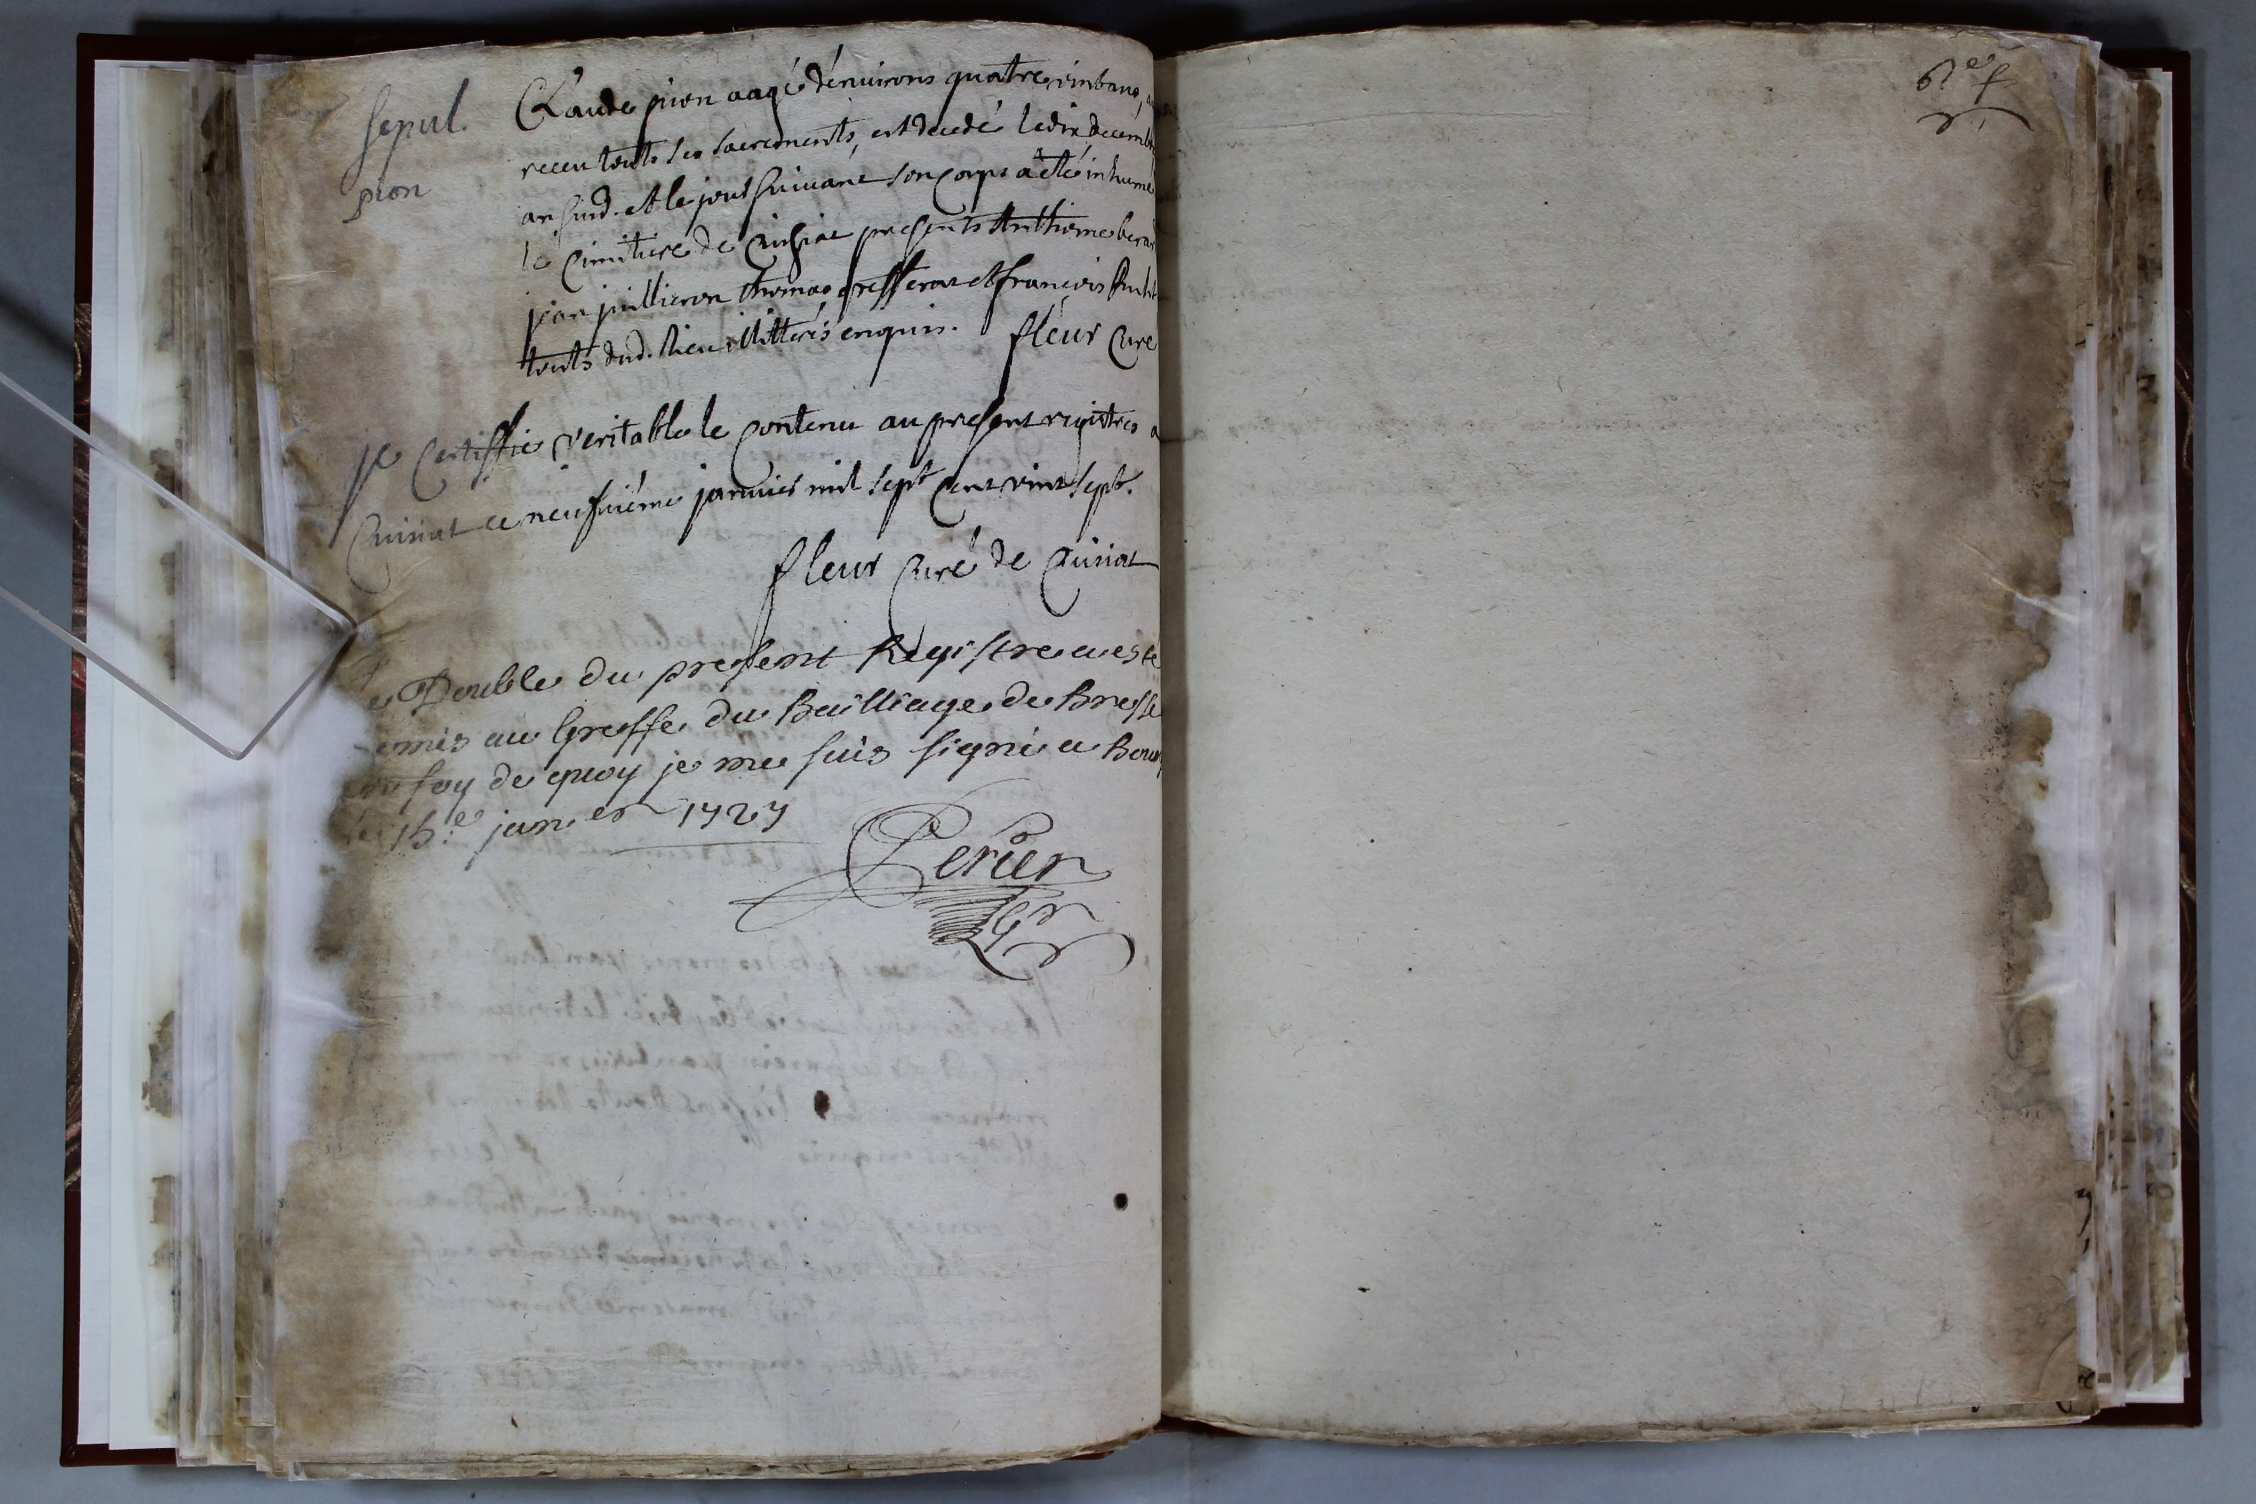 sepul.
pion
Claude pion aagé d'enuirons quatre vinbans,
receu touts ses sacrements, est decedé le dix decemb
an susd. et le jour suiuant son corps a eté inhumé
le cimitiere de Cuisiat presents Anthieme
jean juillieron thomas et françois
touts dud. lieu illitterés enquis. fleur Curé
je Certiffie veritable le Contenu au present registres a
Cuisiat ce neufuiéme januier mil sept cent vint sept.
fleur Curé de Cuisiat
Le Double du present Registre a esté
remis au Greffe du Bailliage de Bresse
en foy de quoy je me suis signé a Bourg
le 15.e januer 1727
Perier
Gr
61e f